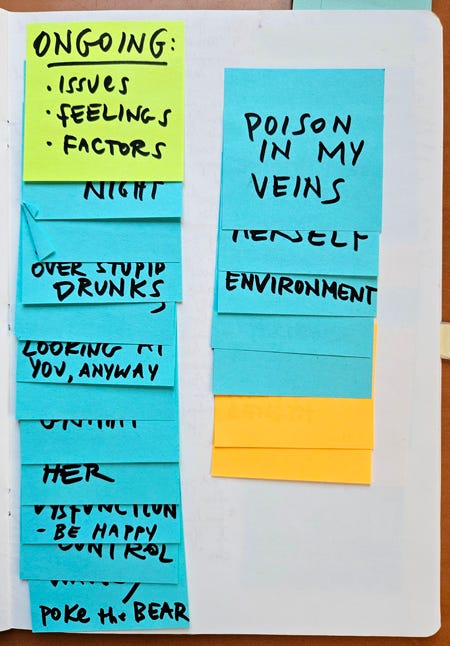 ONGOING:
• ISSUES
• FEELINGS
• FACTORS
NIGHT
OVER STUPID
DRUNKS
LOOKING AT
YOU, ANYWAY
HER
DYSFUNCTION
- BE HAPPY
CONTROL
POKE the BEAR
POISON
IN MY
VEINS
HERSELF
ENVIRONMENT